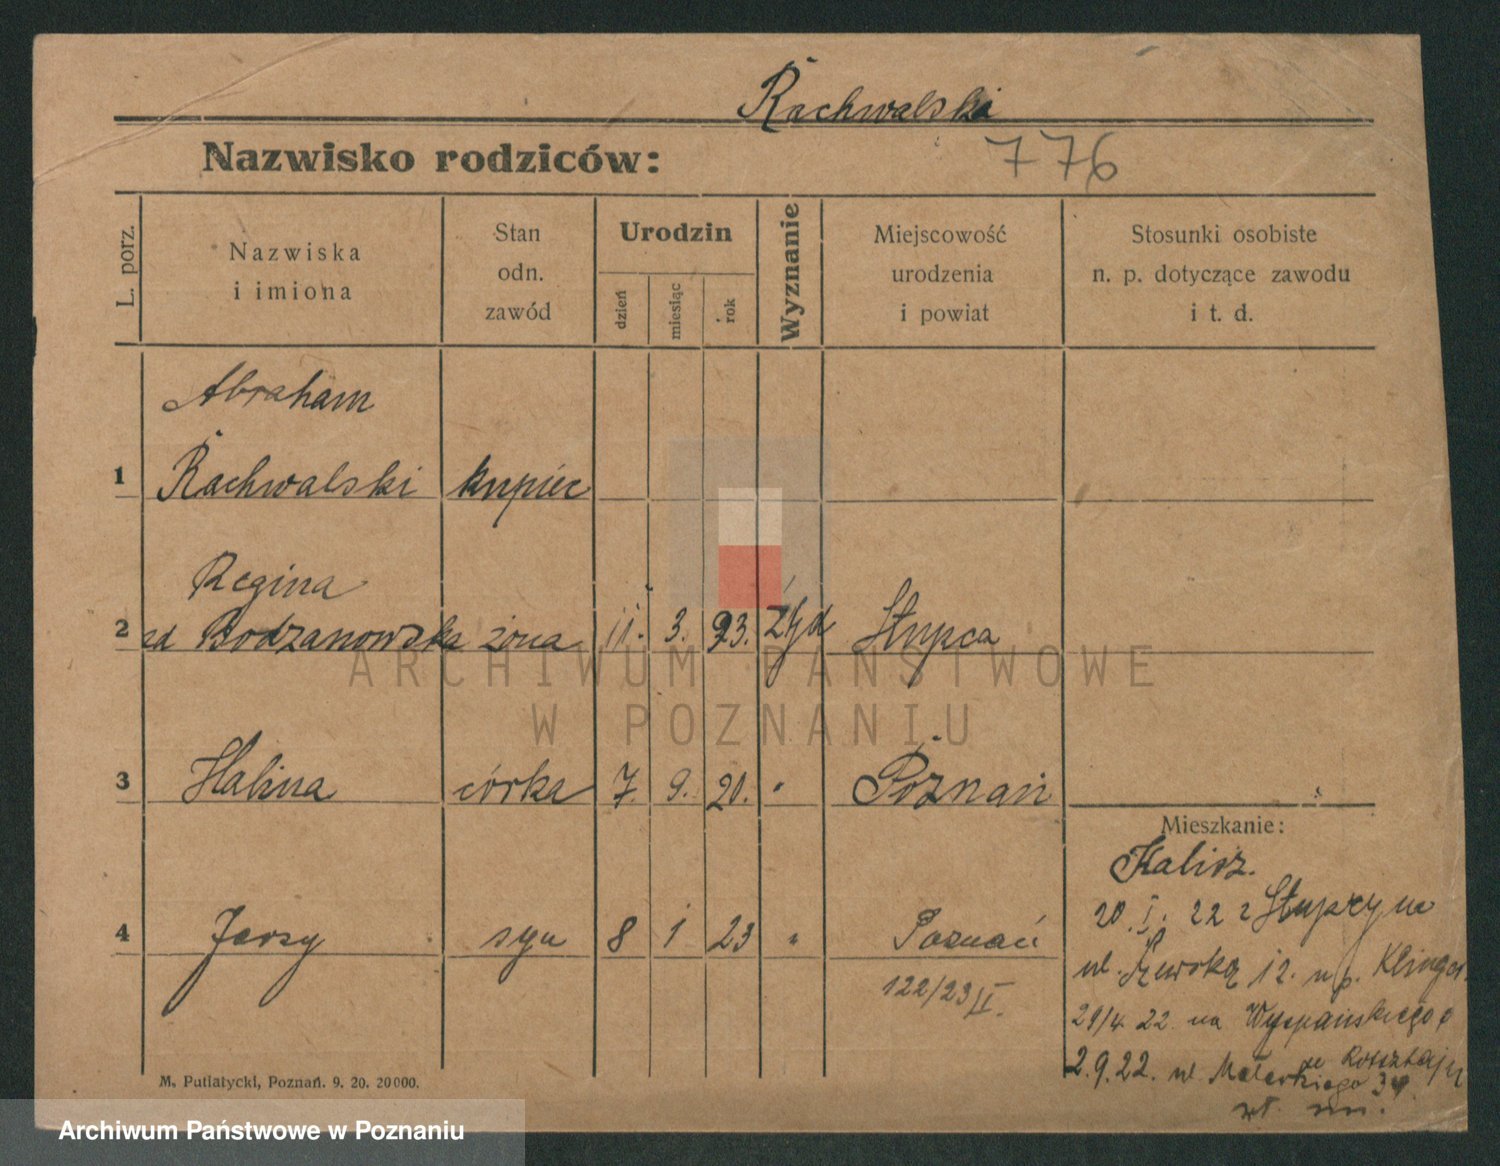 Rachwalski
Nazwisko rodziców:
776
L. porz.
Nazwiska
i imiona
Stan
odn.
zawód
Urodzin
dzień
miesiąc
rok
Wyznanie
Miejscowość
urodzenia
i powiat
Stosunki osobiste
n. p. dotyczące zawodu
i t. d.
Abraham
1 Rachwalski kupiec
Regina
2 Bodzanowska żona 11. 3. 93. Żyd Słupca
3 Halina córka 7. 9. 20. " Poznań
Mieszkanie:
Kalisz.
20. I. 22 z Słupcy na
4 Jerzy syn 8 1 23 " Poznań
ul. Szewską 12. u p. Klinger
122/23 II.
29/4 22 na Wyspiańskiego
2.9.22. ul. 39.
M. Putiatycki, Poznań. 9. 20. 20000.
ARCHIWUM PAŃSTWOWE
W POZNANIU
Archiwum Państwowe w Poznaniu